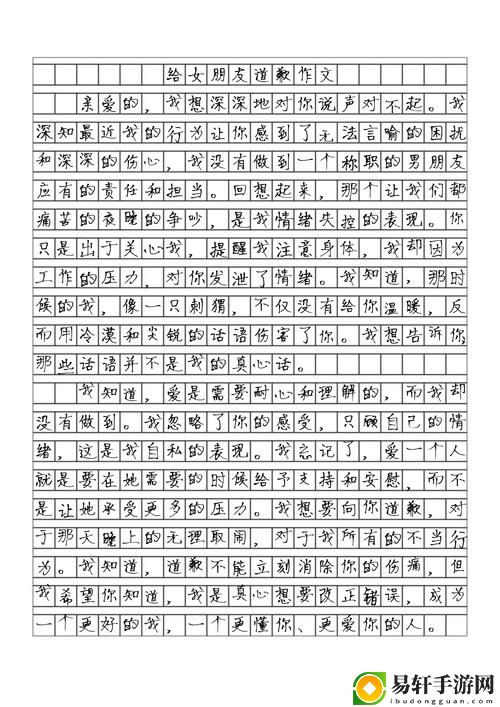 给女朋友道歉作文
亲爱的，我想深深地对你说声对不起。我
深知最近我的行为让你感到了无法言喻的困扰
和深深的伤心，我没有做到一个称职的男朋友
应有的责任和担当。回想起来，那个让我们都
痛苦的夜晚的争吵，是我情绪失控的表现。你
只是出于关心我，提醒我注意身体，我却因为
工作的压力，对你发泄了情绪。我知道，那时
候的我，像一只刺猬，不仅没有给你温暖，反
而用冷漠和尖锐的话语伤害了你。我想告诉你，
那些话语并不是我的真心话。
我知道，爱是需要耐心和理解的，而我却
没有做到。我忽略了你的感受，只顾自己的情
绪，这是我自私的表现。我忘记了，爱一个人
就是要在她需要的时候给予支持和安慰，而不
是让她承受更多的压力。我想要向你道歉，对
于那天晚上的无理取闹，对于我所有的不当行
为。我知道，道歉不能立刻消除你的伤痛，但
我希望你知道，我是真心想要改正错误，成为
一个更好的我，一个更懂你、更爱你的人。
易轩手游网
ibudongbudong.com